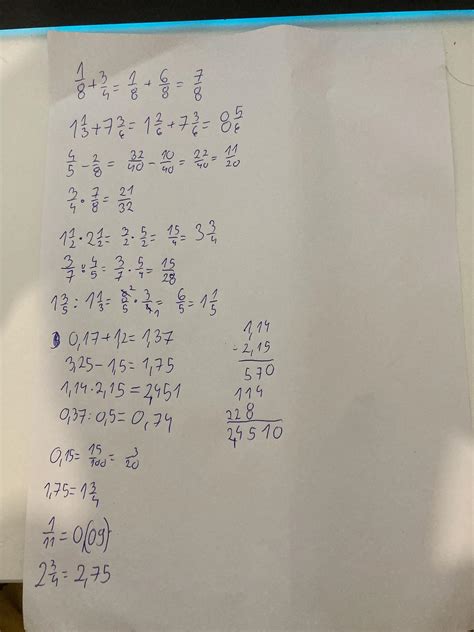 1/8 + 3/4 = 1/8 + 6/8 = 7/8
1 1/3 + 7 3/6 = 1 2/6 + 7 3/6 = 8 5/6
4/5 - 2/8 = 32/40 - 10/40 = 22/40 = 11/20
3/4 · 7/8 = 21/32
1 1/2 · 2 1/2 = 3/2 · 5/2 = 15/4 = 3 3/4
3/7 : 4/5 = 3/7 · 5/4 = 15/28
1 3/5 : 1 1/3 = 8/5 2 · 3/4 1 = 6/5 = 1 1/5
0,17 + 1,2 = 1,37
3,25 - 1,5 = 1,75
1,14 · 2,15 = 2,451
0,37 : 0,5 = 0,74
1,14
· 2,15
570
114
228
2,4510
0,15 = 15/100 = 3/20
1,75 = 1 3/4
1/11 = 0,(09)
2 3/4 = 2,75